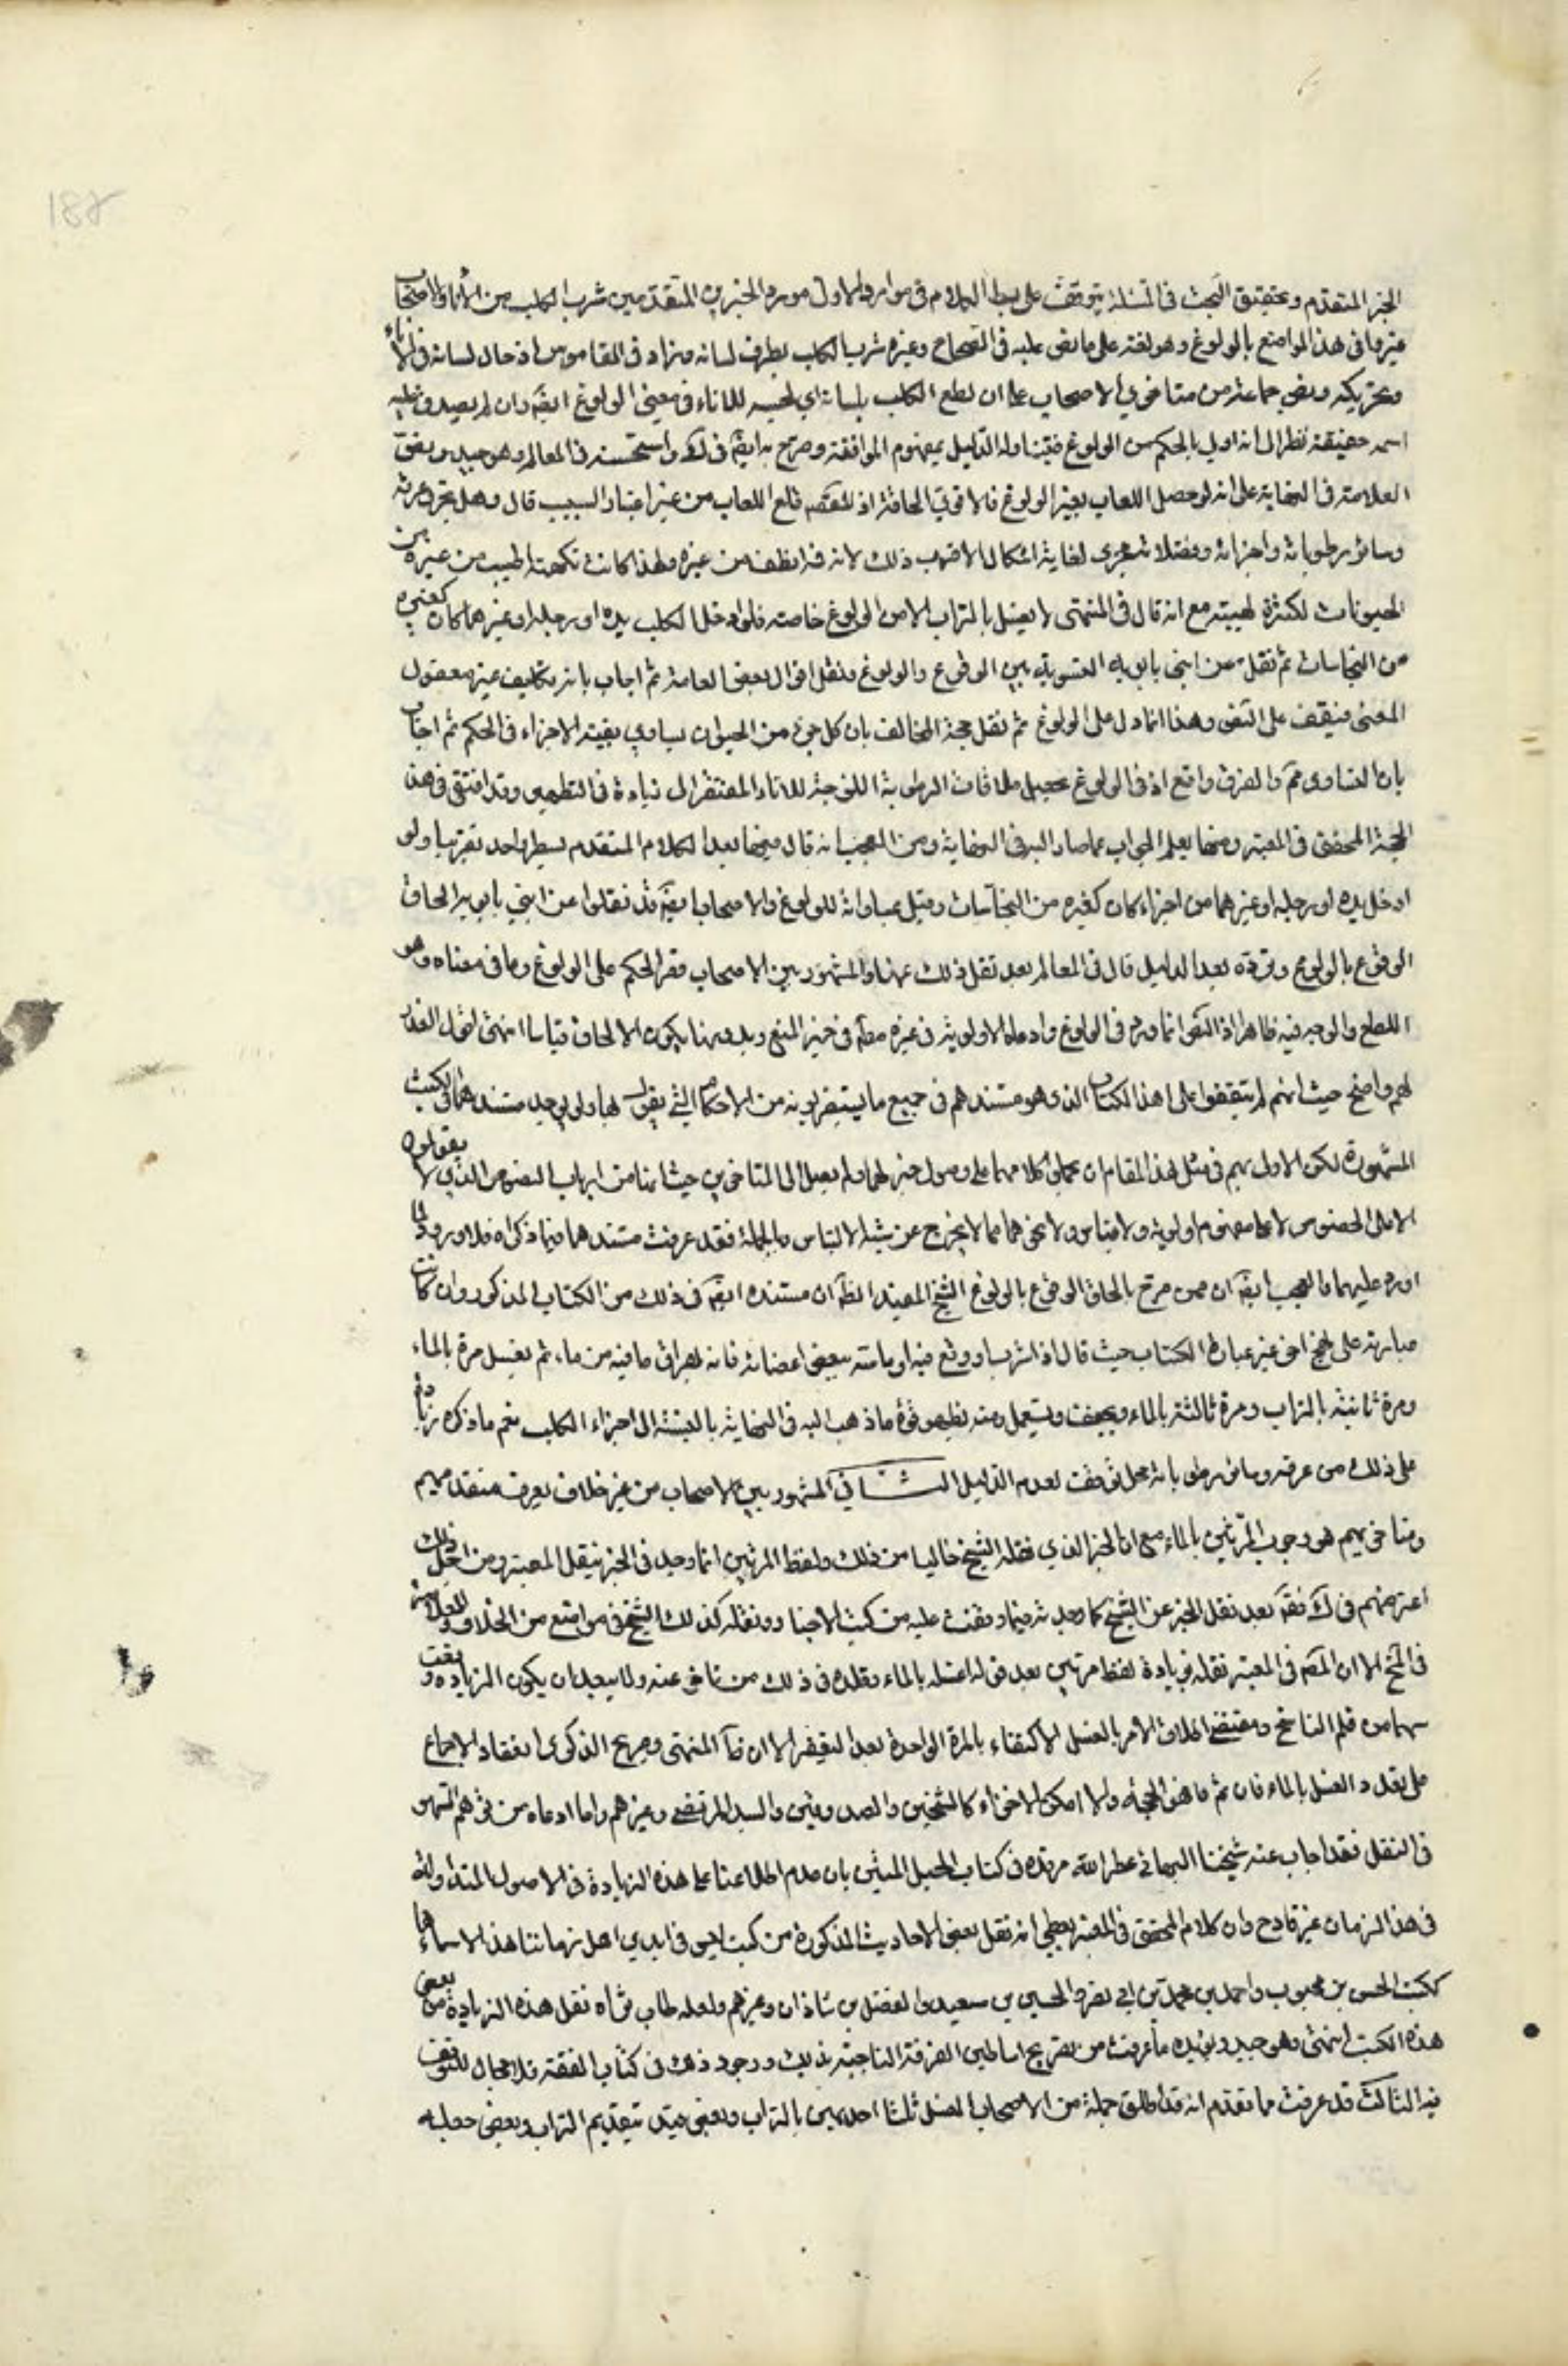 الخبر المتقدم وتحقيق البحث في المسئلة يتوقف على بسط الكلام في موارد الاول مورد الخبرين المتقدمين شرب الكلب من الاناء والاصحاب
عبروا في هذا المواضع بالولوغ وهو لغة على ما نص عليه في الصحاح وغيره شرب الكلب بطرف لسانه وزاد في القاموس ادخال لسانه في الاناء
وتحريكه ونص جماعة من متاخري الاصحاب على ان لطع الكلب بلسانه اي لحسه للاناء في معنى الولوغ ايضا وان لم يصدق عليه
اسمه حقيقة نظرا الى انه اولى بالحكم من الولوغ فيتناوله الدليل بمفهوم الموافقة وصرح به ايضا في ك واستحسنه في المعالم وهو جيد ونص
العلامة في النهاية على انه لو حصل اللعاب بغير الولوغ فالاقوى الحاقه اذ المقصد قلع اللعاب من غير اعتبار السبب قال وهل يجري عرقه
وسائر رطوباته واجزائه وفضلاته مجرى لعابه اشكال الاقرب ذلك لانه فمه انظف من غيره ولهذا كانت نكهته اطيب من غيره من
الحيونات لكثرة لهيثه مع انه قال في المنتهى لا يغسل بالتراب الا من الولوغ خاصة فلو ادخل الكلب يده او رجله او غيرهما كان كغيره
من النجاسات ثم نقل عن ابني بابويه التسوية بين الوقوع والولوغ ونقل اقوال بعض العامة ثم اجاب بانه تكليف غير معقول
المعنى فيقف على النص وهذا انما دل على الولوغ ثم نقل حجة المخالف بان كل جزء من الحيوان يساوي بقية الاجزاء في الحكم ثم اجاب
بان التساوي مم والفرق واقع اذ في الولوغ تحصل ملاقات الرطوبة اللزجة للاناء المفتقر الى زيادة في التطهير وقد اقتفى في هذه
الحجة المحقق في المعتبر ومنها يعلم الجواب عما صار اليه في النهاية ومن العجب انه قال فيها بعد الكلام المتقدم بسطر واحد تقريبا ولو
ادخل يده او رجله او غيرهما من اجزائه كان كغيره من النجاسات وقيل بمساواته للولوغ والاصحاب ايضا قد نقلوا عن ابني بابويه الحاق
الوقوع بالولوغ وردوه بعد الدليل قال في المعالم بعد نقل ذلك عنهما والمشهور بين الاصحاب قصر الحكم على الولوغ وما في معناه وهو
اللطع والوجه فيه ظاهر اذ النص انما ورد في الولوغ وادعاء الاولوية في غيره مطم في حيز المنع وبدونها يكون الالحاق قياسا انتهى اقول العذر
لهم واضح حيث انهم لم يقفوا على هذا الكتاب الذي هو مستندهم في جميع ما يستغربونه من الاحكام التي يقول بها ولم يوجد مستندهما في الكتب
المشهورة لكن الاولى بهم في مثل هذا المقام ان يحملوا كلامهما على وصول خبر لهما ولم يصل الى المتاخرين حيث انهما من ارباب النصوص الذين لا يقولون
الا على الخصوص لا على مفهوم اولوية ولا قياس ولا نحوهما مما لا يخرج عن شبه الالتباس وبالجملة فقد عرفت مستندهما فيما ذكراه فلا ورود لما
اورد عليهما والعجب ايضا ان ممن صرح بالحاق الوقوع بالولوغ الشيخ المفيد والظ ان مستنده ايضا في ذلك من الكتاب المذكور وان كانت
عبارته على نهج اخر غير عبارة الكتاب حيث قال اذا شرب او وقع فيه او ماسه ببعض اعضائه فانه يهراق ما فيه من ماء ثم يغسل مرة بالماء
ومرة ثانية بالتراب ومرة ثالثة بالماء ويجفف ويستعمل ومنه يظهر قوة ما ذهب اليه في النهاية بالنسبة الى اجزاء الكلب نعم ما ذكره زيادة
على ذلك من عرقه وسائر رطوباته محل توقف لعدم الدليل الثاني المشهور بين الاصحاب من غير خلاف يعرف متقدميهم
ومتاخريهم هو وجوب المرتين بالماء مع ان الخبر الذي نقله الشيخ خاليا من ذلك ولفظ المرتين انما وجد في الخبر بنقل المعتبر ومن اجل ذلك
اعترضهم في ك فقال بعد نقل الخبر عن الشيخ كما وجدته فيما وقفت عليه من كتب الاخبار ونقله كذلك الشيخ في مواضع من الخلاف والعلامة
في المخ الا ان المص في المعتبر نقله بزيادة لفظ مرتين بعد قوله اغسله بالماء وقلده في ذلك من تاخر عنه ولا يبعد ان يكون الزيادة وقعت
سهوا من قلم الناسخ ومقتضى اطلاق الامر بالغسل الاكتفاء بالمرة الواحدة بعد التعفير الا ان ظاهر المنتهى وصريح الذكرى انعقاد الاجماع
على تعدد الغسل بالماء فان تم فهو الحجة والا امكن الاجتزاء كالشيخين والصدوقين والسيد المرتضى وغيرهم واما ادعاه من توهم السهو
في النقل فقد اجاب عنه شيخنا البهائي عطر الله مرقده في كتاب الحبل المتين بان عدم اطلاعنا على هذه الزيادة في الاصول المتداولة
في هذا الزمان غير قادح وان كلام المحقق في المعتبر يعطي انه نقل بعض الاحاديث المذكورة من كتب ليس في ايدي اهل زماننا هذا الا اسماءها
ككتب الحسن بن محبوب واحمد بن محمد بن ابي نصر والحسين بن سعيد والفضل بن شاذان وغيرهم ولعله طاب ثراه نقل هذه الزيادة من بعض
هذه الكتب انتهى وهو جيد ويؤيده ما عرفت من تصريح اساطين الفرقة الناجية بذلك ووجود ذلك في كتاب الفقه فلا مجال للتوقف
فيه الثالث قد عرفت مما تقدم انه قد اطلق جملة من الاصحاب الغسل ثلثا احديهن بالتراب وبعض قيد بتقديم التراب وبعض جعله